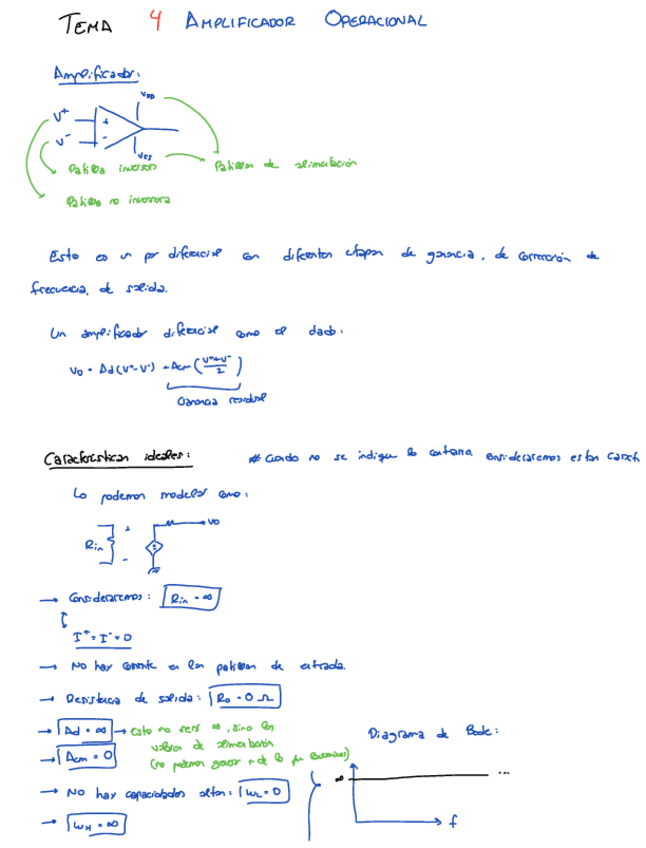 TEMA 4 AMPLIFICADOR OPERACIONAL
Amplificador:
VDD
V+
+
V-
-
VSS
Patilla inversora
Patillas de alimentación
Patilla no inversora
Esto es un par diferencial con diferentes etapas de ganancia, de corrección de
frecuencia, de salida.
Un amplificador diferencial como el dado:
Vo = Ad(V+-V-) + Acm (V++V-/2)
Ganancia residual
Características ideales:
# Cuando no se indique lo contrario consideraremos estas caract
Lo podemos modelar como:
+
Vo
Rin
-
→ Consideraremos: Rin = ∞
I+=I-=0
→ No hay corriente en las patillas de entrada.
→ Resistencia de salida: Ro = 0 Ω
→ Ad = ∞ → Esto no será ∞, sino los
valores de alimentación
(no podemos ganar + de lo que
→ Acm = 0
Diagrama de Bode:
∞
...
→ No hay capacidades altas: WL = 0
f
→ WH = ∞